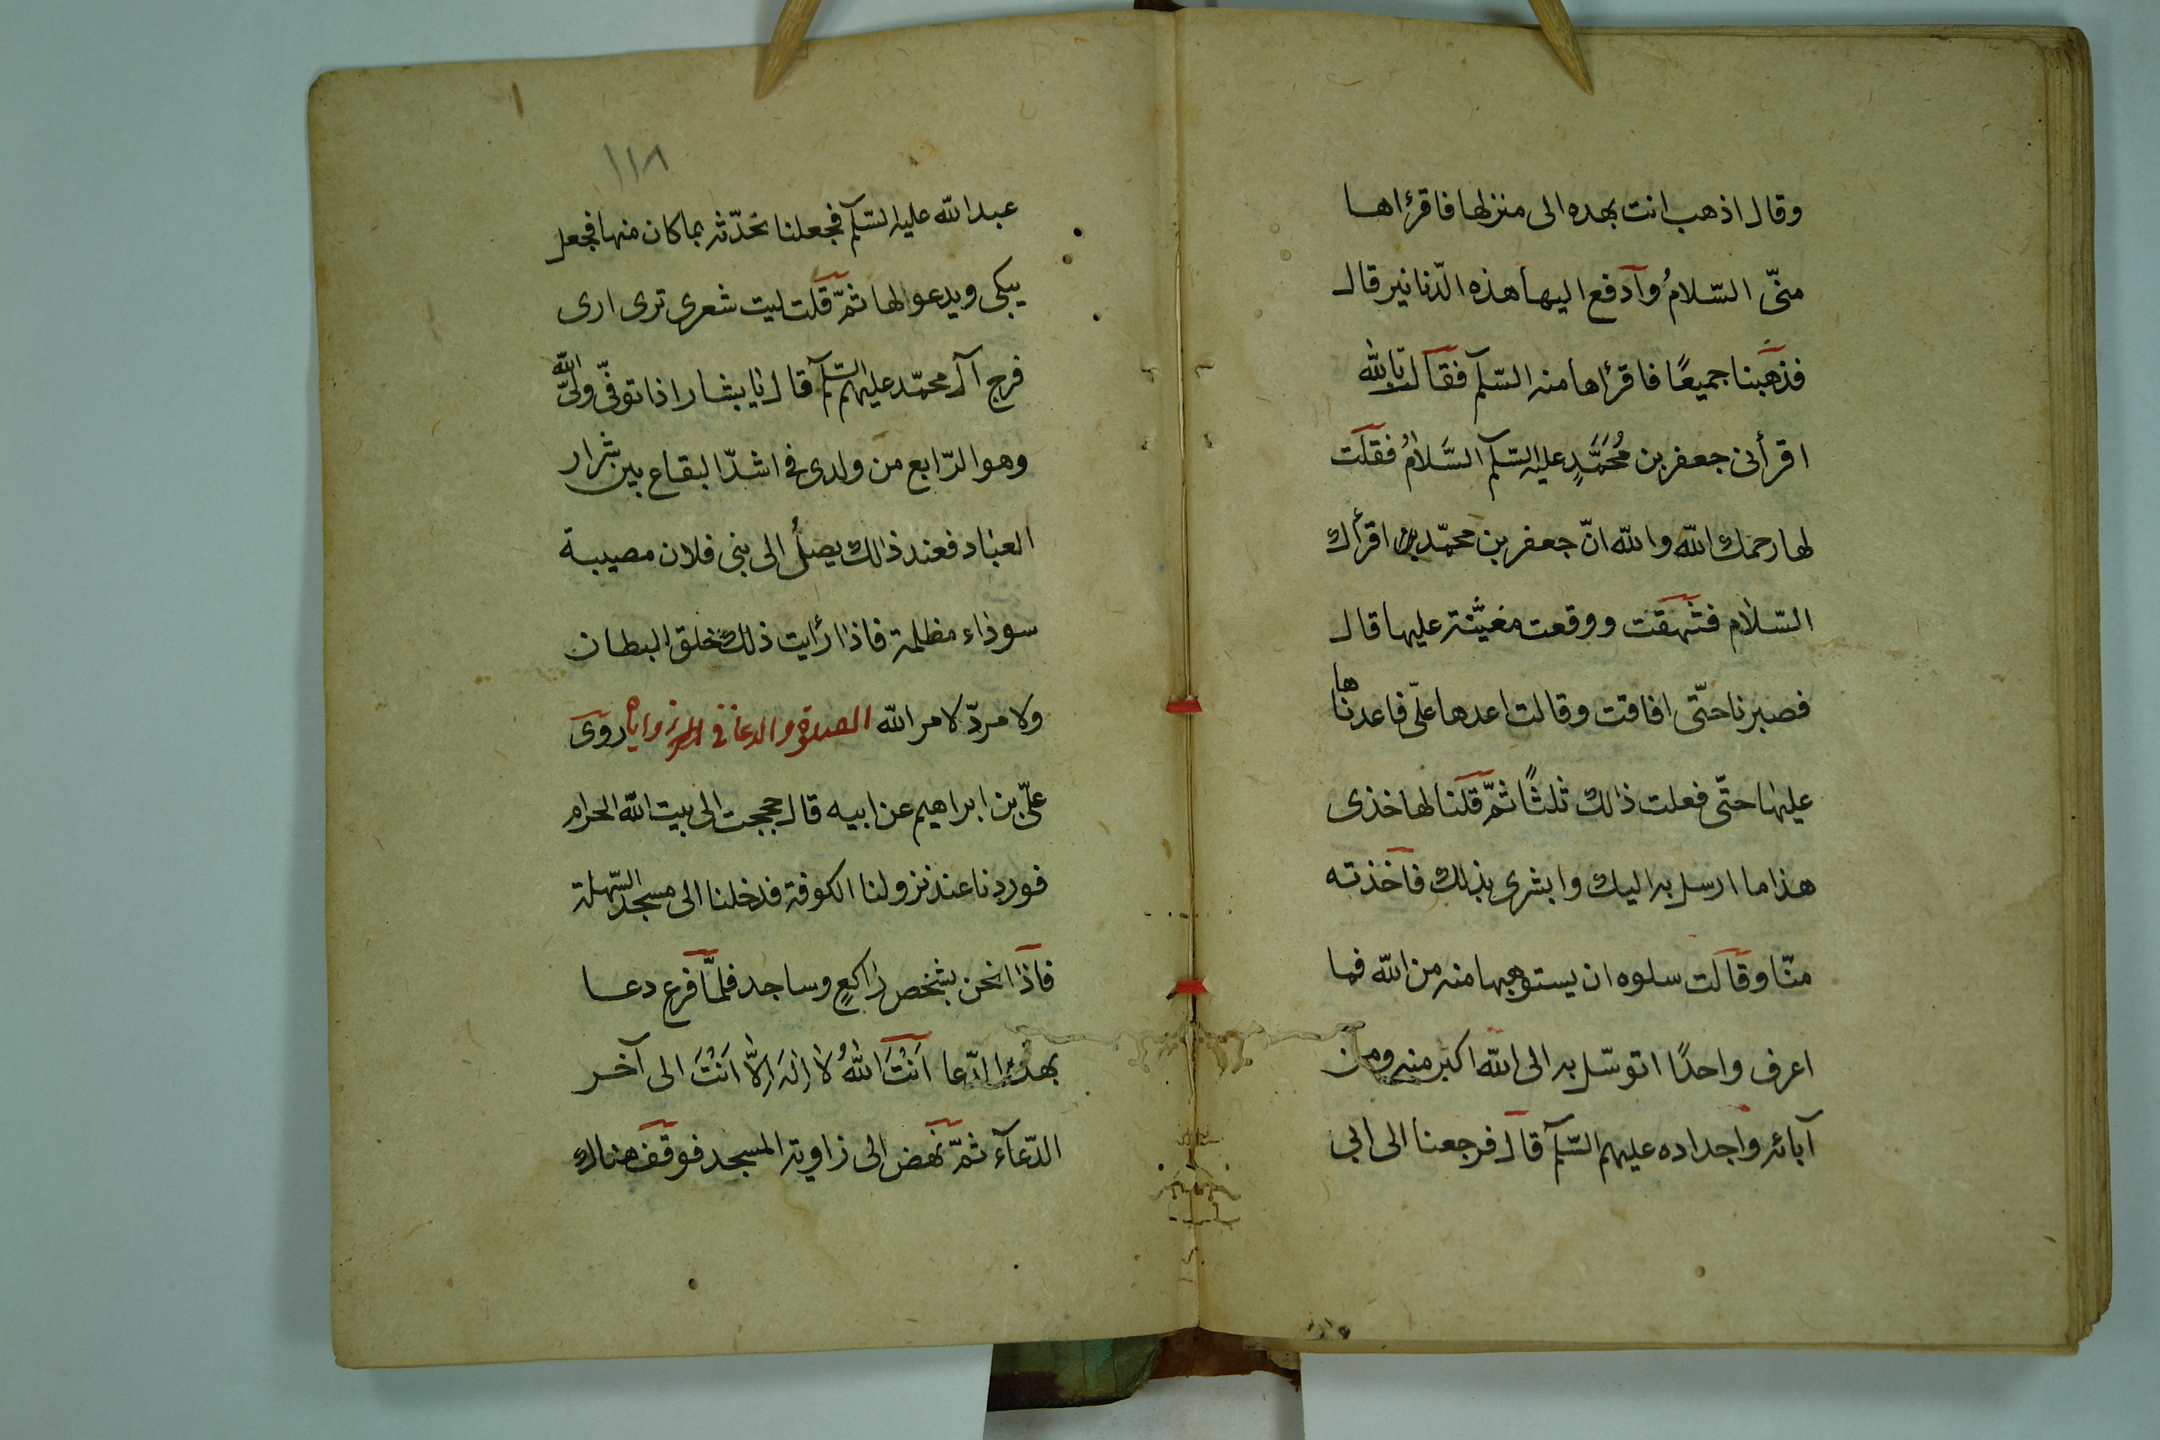 وقال اذهب انت بهده الى منزلها فاقرٔاها
منّى السّلامُ وآدفع اليها هذه الدّنانير قال
فذهبنا جميعًا فاقرأها منه السّلم فقالت بالله
اقرأنى جعفر بن مُحَمَّدٍ عليه السّلم السَّلامُ فقلت
لها رحمك الله والله انّ جعفر بن محمّد اقرأك
السّلام فشهقت ووقعت مغيّثة عليها قال
فصبرنا حتّى افاقت وقالت اعدها علّى فاعدناها
عليها حتّى فعلت ذالك ثلثًا ثمّ قلنا لها خذى
هذا ما ارسل به اليك وابشرى بذلك فاخذته
منّا وقالت سلوه ان يستوهبها منه من الله فما
اعرف واحدًا اتوسّل به الى الله اكبر منه ومن
آبائه واجداده عليهم السّلم قال فرجعنا الى ابى
١١٨
عبد الله عليه السّلم فجعلنا نحدّثه بما كان منها فجعل
يبكى ويدعو لها ثمّ قلت ليت شعرى ترى ارى
فرج آل محمّد عليهم السّلم قال يا بشار اذا توفّى ولىّ الله
وهو الرّابع من ولدى فى اشدّ البقاع بين شرار
العباد فعند ذالك يصلُ الى بنى فلان مصيبة
سوداء مظلمة فاذا رأيت ذلك خلق البطان
ولا مردّ لامر الله الصلوة والدعا فى زواياه روى
علىّ بن ابراهيم عن ابيه قال حججت الى بيت الله الحرام
فوردنا عند نزولنا الكوفة فدخلنا الى مسجد السّهلة
فاذا نحن بشخص راكعٍ وساجد فلمّا فرع دعا
بهذا الدّعا اَنْتَ اللهُ لا اِلٰهَ اِلاّ اَنْتَ الى آخر
الدّعآء ثمّ نهض الى زاوية المسجد فوقف هناك